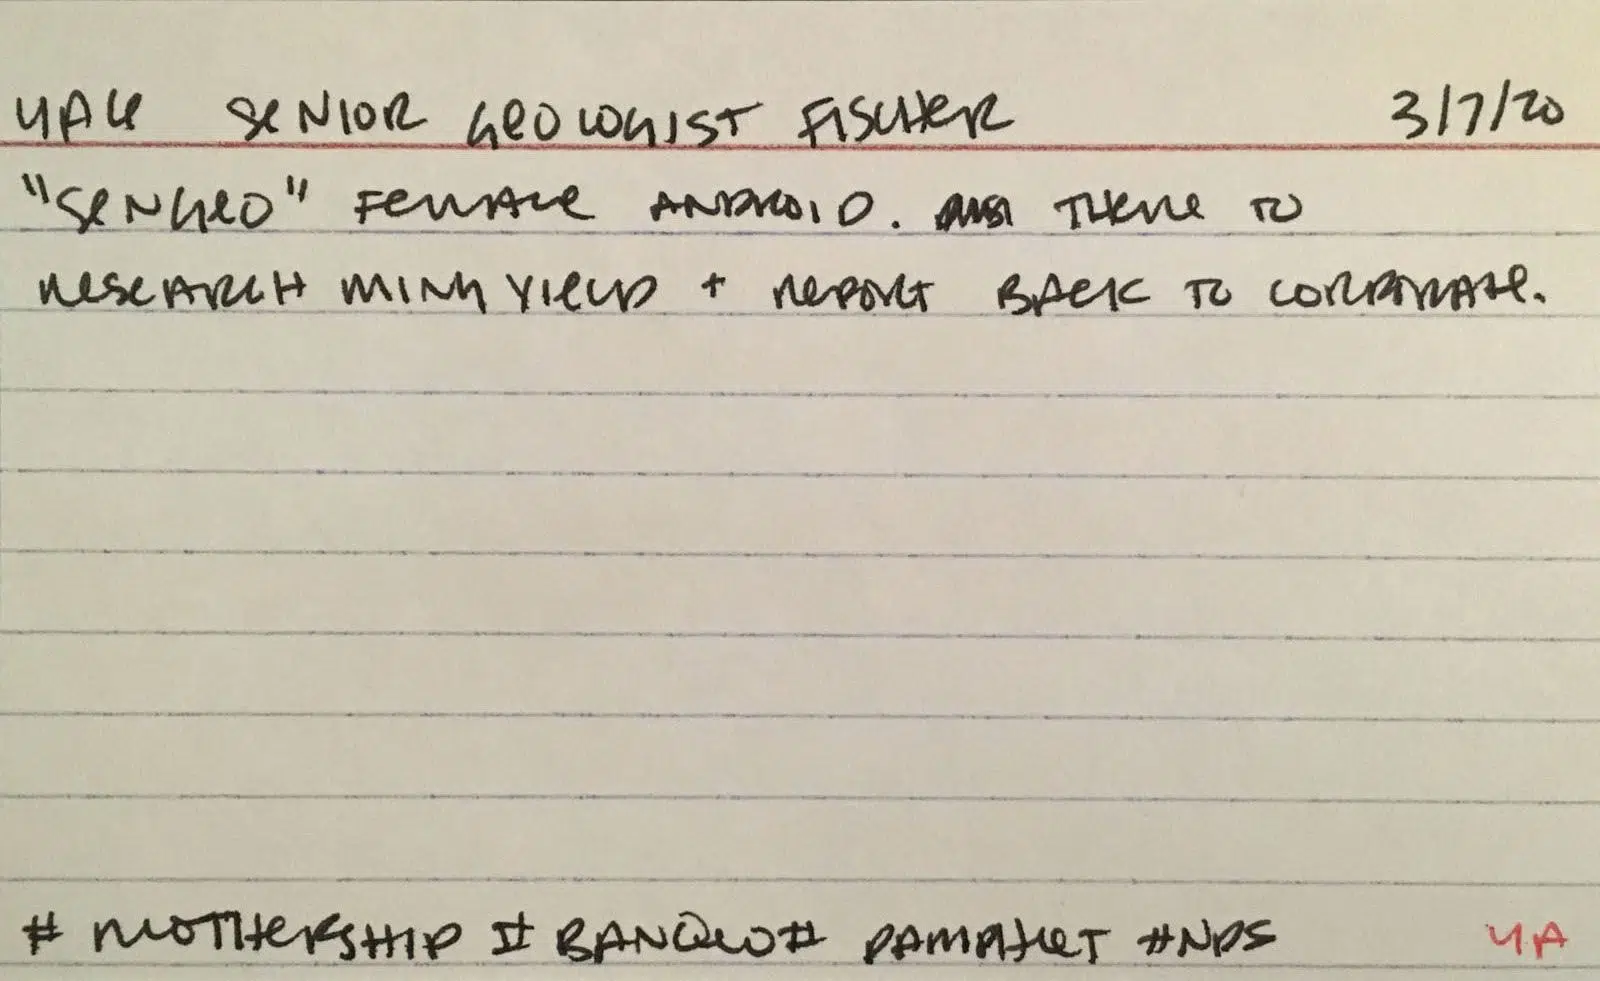 4A4 SENIOR GEOLOGIST FISCHER 3/7/20
"SENGEO" FEMALE ANDROID. THERE TO
RESEARCH MING YIELD + REPORT BACK TO CORPORATE.
# MOTHERSHIP # BANQUO # PAMPHLET #NPS 4A